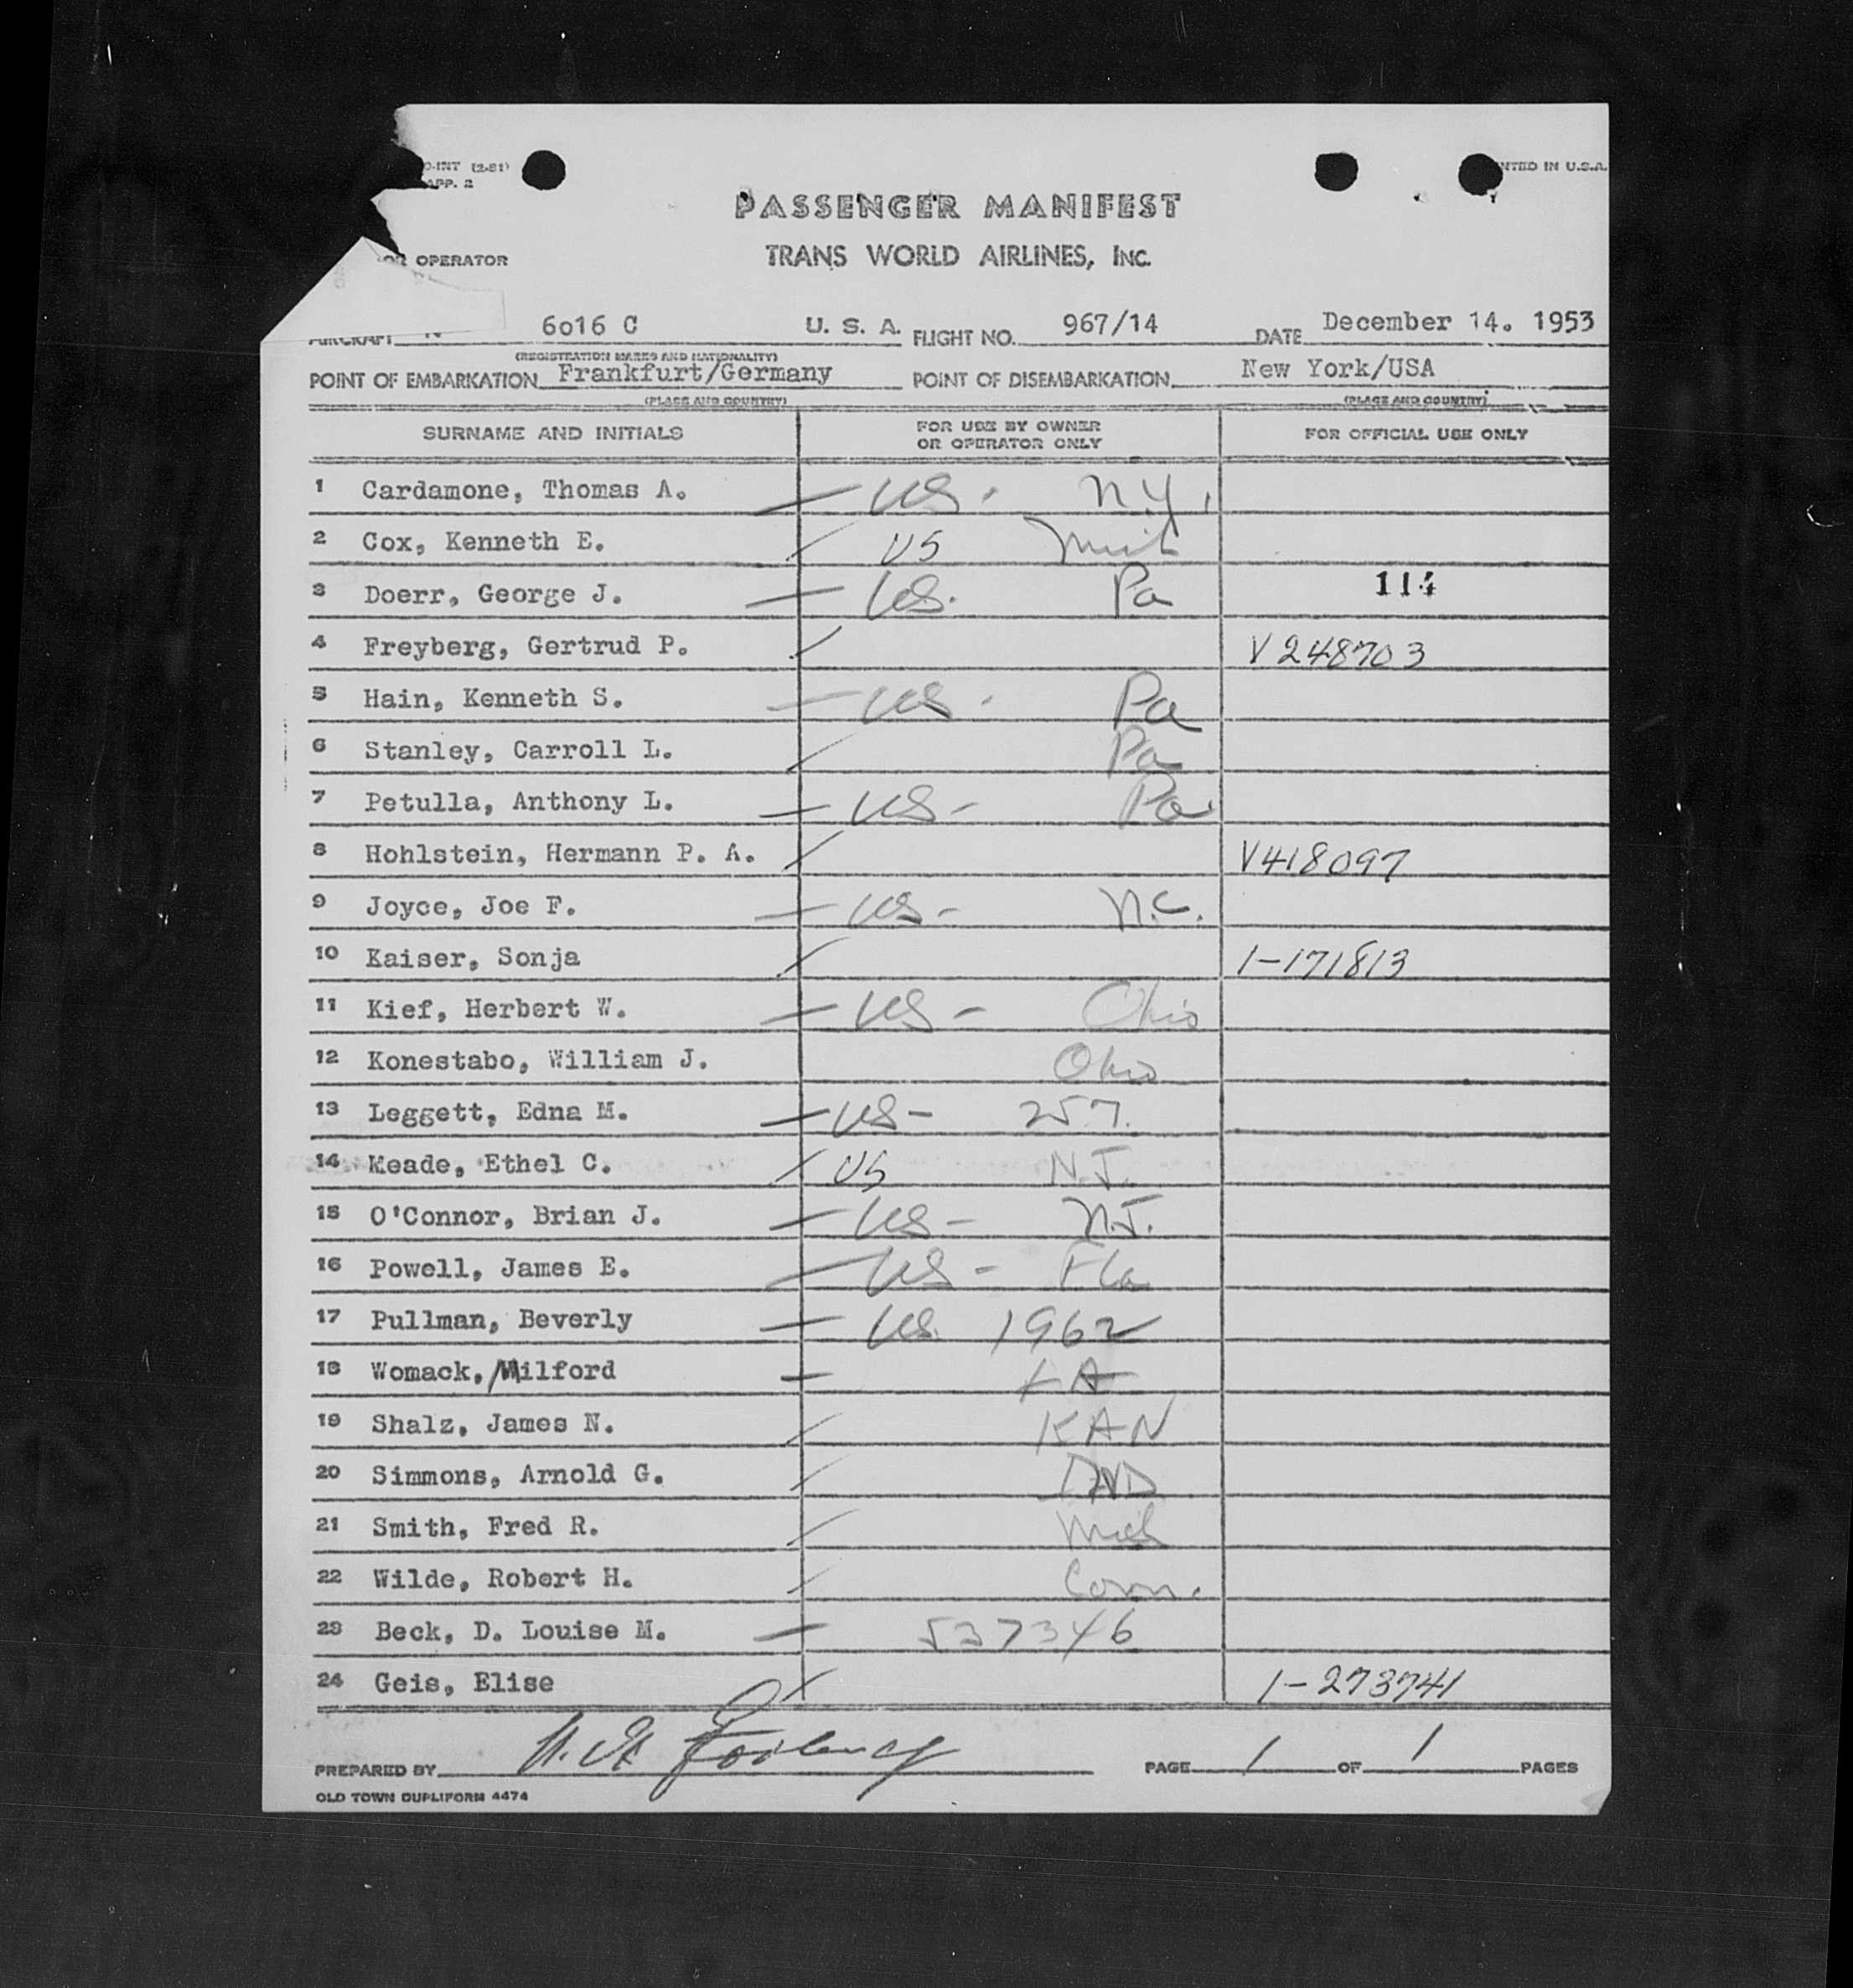 O-INT (2-51)
APP. 2
NTED IN U.S.A.
PASSENGER MANIFEST
TRANS WORLD AIRLINES, INC.
OR OPERATOR
AIRCRAFT N 6o16 C U. S. A. FLIGHT NO. 967/14 DATE December 14. 1953
(REGISTRATION MARKS AND NATIONALITY)
POINT OF EMBARKATION Frankfurt/Germany POINT OF DISEMBARKATION New York/USA
(PLACE AND COUNTRY) (PLACE AND COUNTRY)
SURNAME AND INITIALS FOR USE BY OWNER OR OPERATOR ONLY FOR OFFICIAL USE ONLY
1 Cardamone, Thomas A. — US. N.Y.
2 Cox, Kenneth E. / US
3 Doerr, George J. — US. Pa 114
4 Freyberg, Gertrud P. / V248703
5 Hain, Kenneth S. — US. Pa
6 Stanley, Carroll L. / Pa
7 Petulla, Anthony L. — US - Pa
8 Hohlstein, Hermann P. A. / V418097
9 Joyce, Joe F. — US - N.C.
10 Kaiser, Sonja / 1-171813
11 Kief, Herbert W. — US - Ohio
12 Konestabo, William J. Ohio
13 Leggett, Edna M. — US - 257.
14 Meade, Ethel C. / US N.J.
15 O'Connor, Brian J. — US - N.J.
16 Powell, James E. — US - Fla
17 Pullman, Beverly — US. 1962
18 Womack, Milford — LA
19 Shalz, James N. / KAN
20 Simmons, Arnold G. / IND
21 Smith, Fred R. / Mich
22 Wilde, Robert H. / Conn.
23 Beck, D. Louise M. — 537346
24 Geis, Elise / 1-273741
PREPARED BY PAGE 1 OF 1 PAGES
OLD TOWN DUPLIFORM 4474